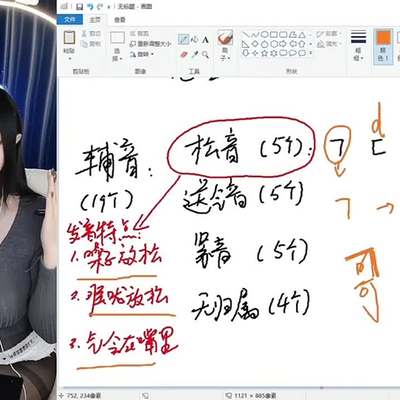 无标题 - 画图
文件 主页 查看
粘贴 选择 裁剪 重新调整大小 旋转 刷子 形状 粗细 颜色 1
剪贴板 图像 工具 形状
辅音: 松音 (5个): ㄱ ㄷ d
(19个) 送气音 (5个) ㄱ →
紧音 (5个)
无归属 (4个)
发音特点:
1. 嗓子放松
2. 喉咙放松
3. 气含在嘴里
752, 234像素 1121 × 885像素